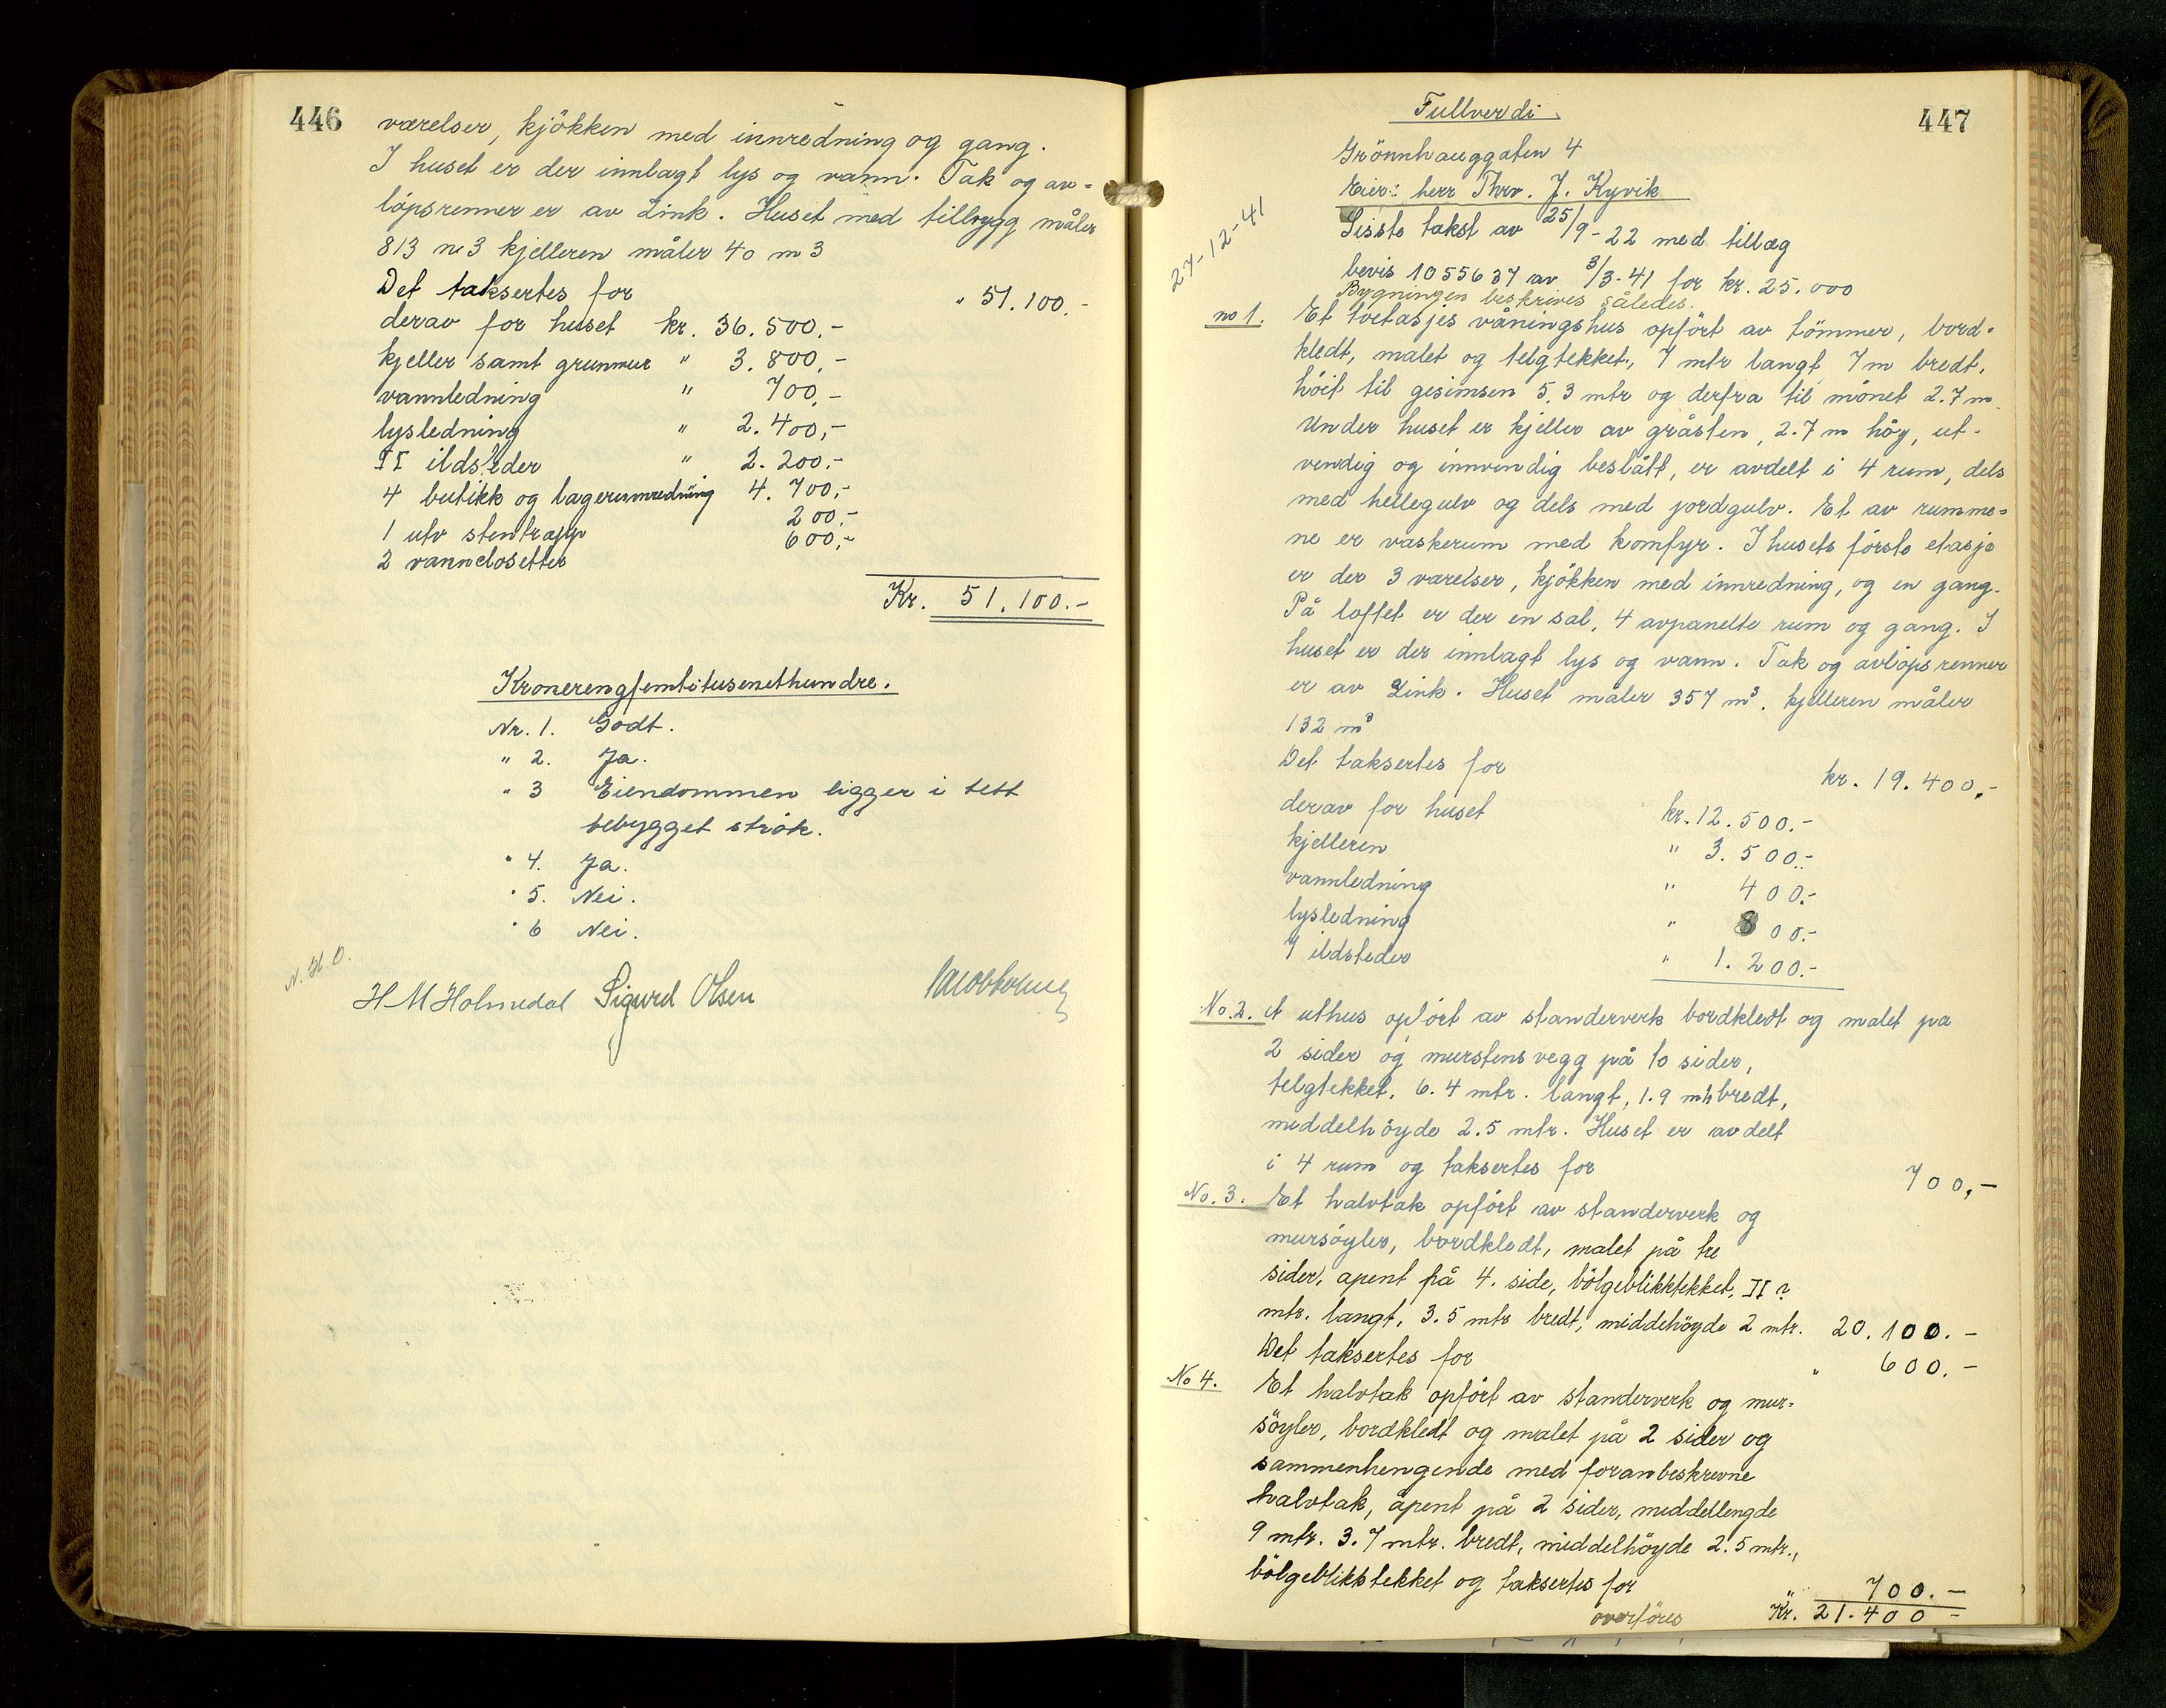 446
værelser, kjökken med innredning og gang.
I huset er der innlagt lys og vann. Tak og av-
löpsrenner er av Zink. Huset med tillbygg måler
813 m3 kjelleren måler 40 m 3
Det taksertes for " 51.100.-
derav for huset kr. 36.500.-
kjeller samt grunmur " 3.800.-
vannledning " 700.-
lysledning " 2.400,-
II ildsteder " 2.200.-
4 butikk og lagerinnredning 4.700,-
1 utv stentrapp 200.-
2 vannclosetter 600,-
Kr. 51.100.-
Kronerengfemtitusenethundre.
Nr. 1. Godt.
" 2. Ja.
" 3 Eiendommen ligger i tett
bebygget strök.
" 4. Ja.
" 5. Nei.
" 6 Nei.
N. H. O.
H M Holmedal Sigurd Olsen
447
Fullverdi
Grönnhauggaten 4
Eier: herr Thrv. J. Kyvik
27-12-41
Sissto takst av 25/9-22 med tillæg
bevis 1055637 av 3/3-41 for kr. 25.000
Bygningen beskrives således.
no 1. Et toetasjes våningshus opfört av tömmer, bord-
kledt, malet og telgtekket, 7 mtr langt 7 m bredt,
höit til gesimsen 5,3 mtr og derfra til mönet 2.7 m.
Under huset er kjeller av gråsten, 2.7 m höy, ut-
vendig og innvendig beslått, er avdelt i 4 rum, dels
med hellegulv og dels med jordgulv. Et av rumme-
ne er vaskerum med komfyr. I husets försto etasje
er der 3 værelser, kjökken med innredning, og en gang.
På loftet er der en sal, 4 avpanelte rum og gang. I
huset er der innlagt lys og vann. Tak og avlöpsrenner
er av Zink. Huset måler 357 m³. kjelleren måler
132 m³
Det taksertes for kr. 19.400,-
derav for huset kr. 12.500.-
kjelleren " 3.500.-
vannledning " 400.-
lysledning " 800.-
7 ildsteder " 1.200.-
No. 2. et uthus opfört av standerverk bordkledt og malet på
2 sider og murstens vegg på to sider,
telgtekket, 6.4 mtr. langt, 1.9 mtr bredt,
middelhöyde 2.5 mtr. Huset er avdelt
i 4 rum og taksertes for 700,-
No. 3. Et halvtak opfört av standerverk og
mursöyler, bordkledt, malet på tre
sider, åpent på 4. side, bölgeblikktekket, II ?
mtr. langt, 3.5 mtr bredt, middehöyde 2 mtr. 20.100.-
Det taksertes for " 600.-
No 4. Et halvtak opfört av standerverk og mur-
söyler, bordkledt og malet på 2 sider og
sammenhengende med foranbeskrevne
halvtak, åpent på 2 sider, middellengde
9 mtr. 3.7 mtr. bredt, middelhöyde 2.5 mtr.,
bölgeblikktekket og taksertes for " 700.-
overföres Kr. 21.400-